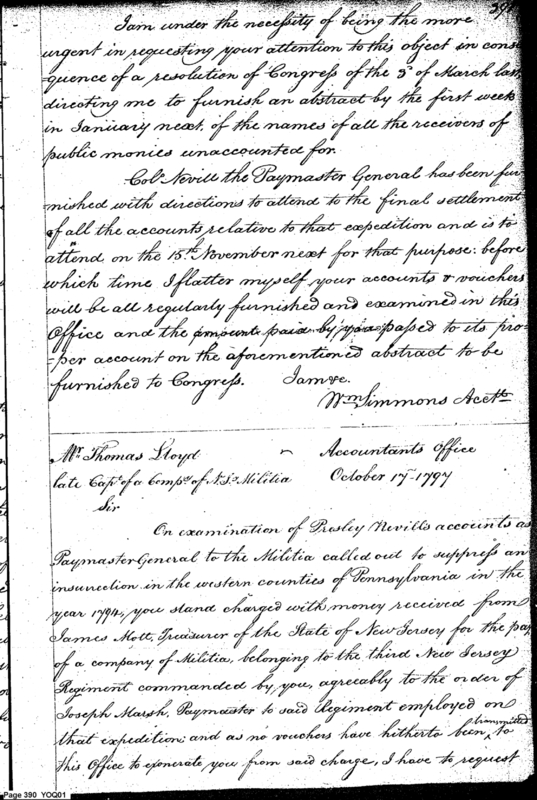 391
I am under the necessity of being the more
urgent in requesting your attention to this object in conse
quence of a resolution of Congress of the 3d of March last,
directing me to furnish an abstract by the first week
in January next, of the names of all the receivers of
public monies unaccounted for.
Colo. Nevill the Paymaster General has been fur-
-nished with directions to attend to the final settlement
of all the accounts relative to that expedition and is to
attend on the 15th November next for that purpose: before
which time I flatter myself your accounts & vouchers
will be all regularly furnished and examined in this
Office and the amounts paid by you passed to its pro=
=per account on the aforementioned abstract to be
furnished to Congress. I am &c.
Wm Simmons Acctt
Mr. Thomas Lloyd Accountants Office
late Capt. of a Compy. of N. J. Militia October 17- 1797
Sir
On examination of Presley Nevills accounts as
Paymaster General to the Militia called out to suppress an
insurrection in the western counties of Pennsylvania in the
year 1794, you stand charged with money received from
James Mott, Treasurer of the State of New Jersey for the pay
of a company of Militia, belonging to the third New Jersey
Regiment commanded by you, agreably to the order of
Joseph Marsh, Paymaster to said Regiment employed on
that expedition; and as no vouchers have hitherto been transmitted to
this Office to exonerate you from said charge, I have to request
Page 390 YOQ01